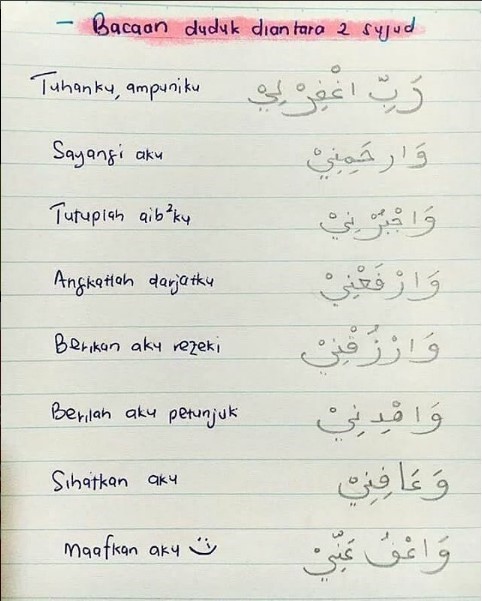 - Bacaan duduk diantara 2 sujud
Tuhanku, ampuniku رَبِّ اغْفِرْ لِيْ
Sayangi aku وَارْحَمِنِيْ
Tutuplah aib²ku وَاجْبُرْنِيْ
Angkatlah darjatku وَارْفَعْنِيْ
Berikan aku rezeki وَارْزُقْنِيْ
Berilah aku petunjuk وَاهْدِنِيْ
Sihatkan aku وَعَافِنِيْ
Maafkan aku وَاعْفُ عَنِّيْ